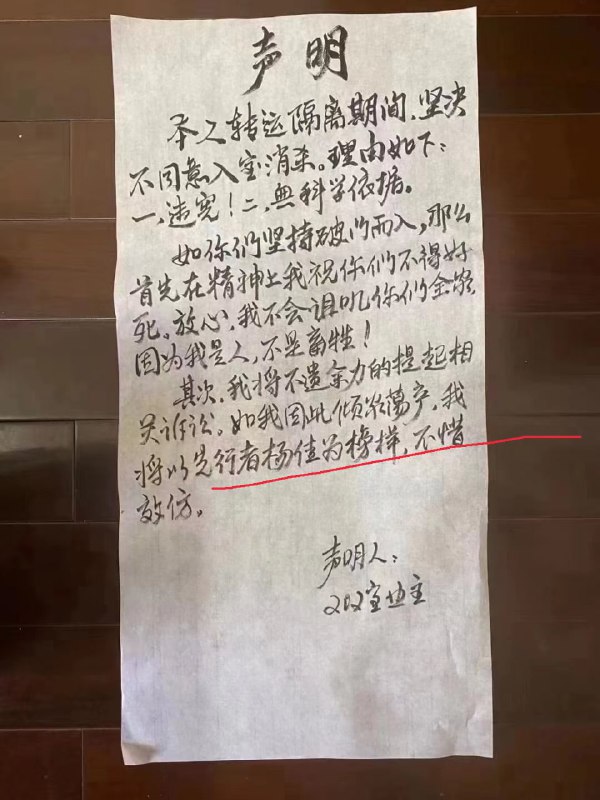 声明
本人转运隔离期间,坚决
不同意入室消杀。理由如下:
一、违宪!二、無科学依据。
如你们坚持破门而入,那么
首先在精神上我祝你们不得好
死。放心,我不会诅咒你们全家,
因为我是人,不是畜牲!
其次,我将不遗余力的提起相
关诉讼。如我因此倾家蕩产,我
将以先行者杨佳为榜样,不惜
效仿。
声明人:
202室业主